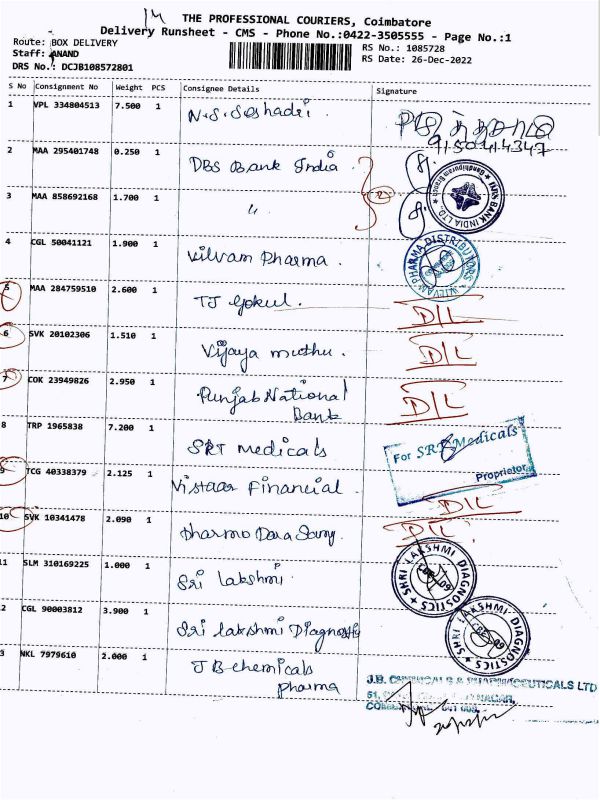 14
THE PROFESSIONAL COURIERS, Coimbatore
Delivery Runsheet - CMS - Phone No.:0422-3505555 - Page No.:1
Route: BOX DELIVERY
RS No.: 1085728
Staff: ANAND
RS Date: 26-Dec-2022
DRS No.: DCJB108572801
S No Consignment No Weight PCS Consignee Details Signature
1 VPL 334804513 7.500 1 N.S. Seshadri
9150414347
2 MAA 295401748 0.250 1 DBS Bank India
DBS BANK INDIA LTD.
3 MAA 858692168 1.700 1 "
4 CGL 50041121 1.900 1 Vilvam Pharma
VILVAM PHARMA DISTRIBUTORS
5 MAA 284759510 2.600 1 TJ Gokul. D/L
6 SVK 20102306 1.510 1 Vijaya muthu. D/L
7 COK 23949826 2.950 1 Punjab National
Bank D/L
8 TRP 1965838 7.200 1 SRT Medicals
For SRT Medicals
Proprietor
9 TCG 40338379 2.125 1 Vistaar Financial D/L
10 SVK 10341478 2.090 1 D/L
11 SLM 310169225 1.000 1 Sri Lakshmi
SHRI LAKSHMI DIAGNOSTICS
CBE-09
2 CGL 90003812 3.900 1 Sri Lakshmi Diagnostic
SHRI LAKSHMI DIAGNOSTICS
CBE-09
3 NKL 7979610 2.000 1 JB chemicals
pharma
J.B. CHEMICALS & PHARMACEUTICALS LTD